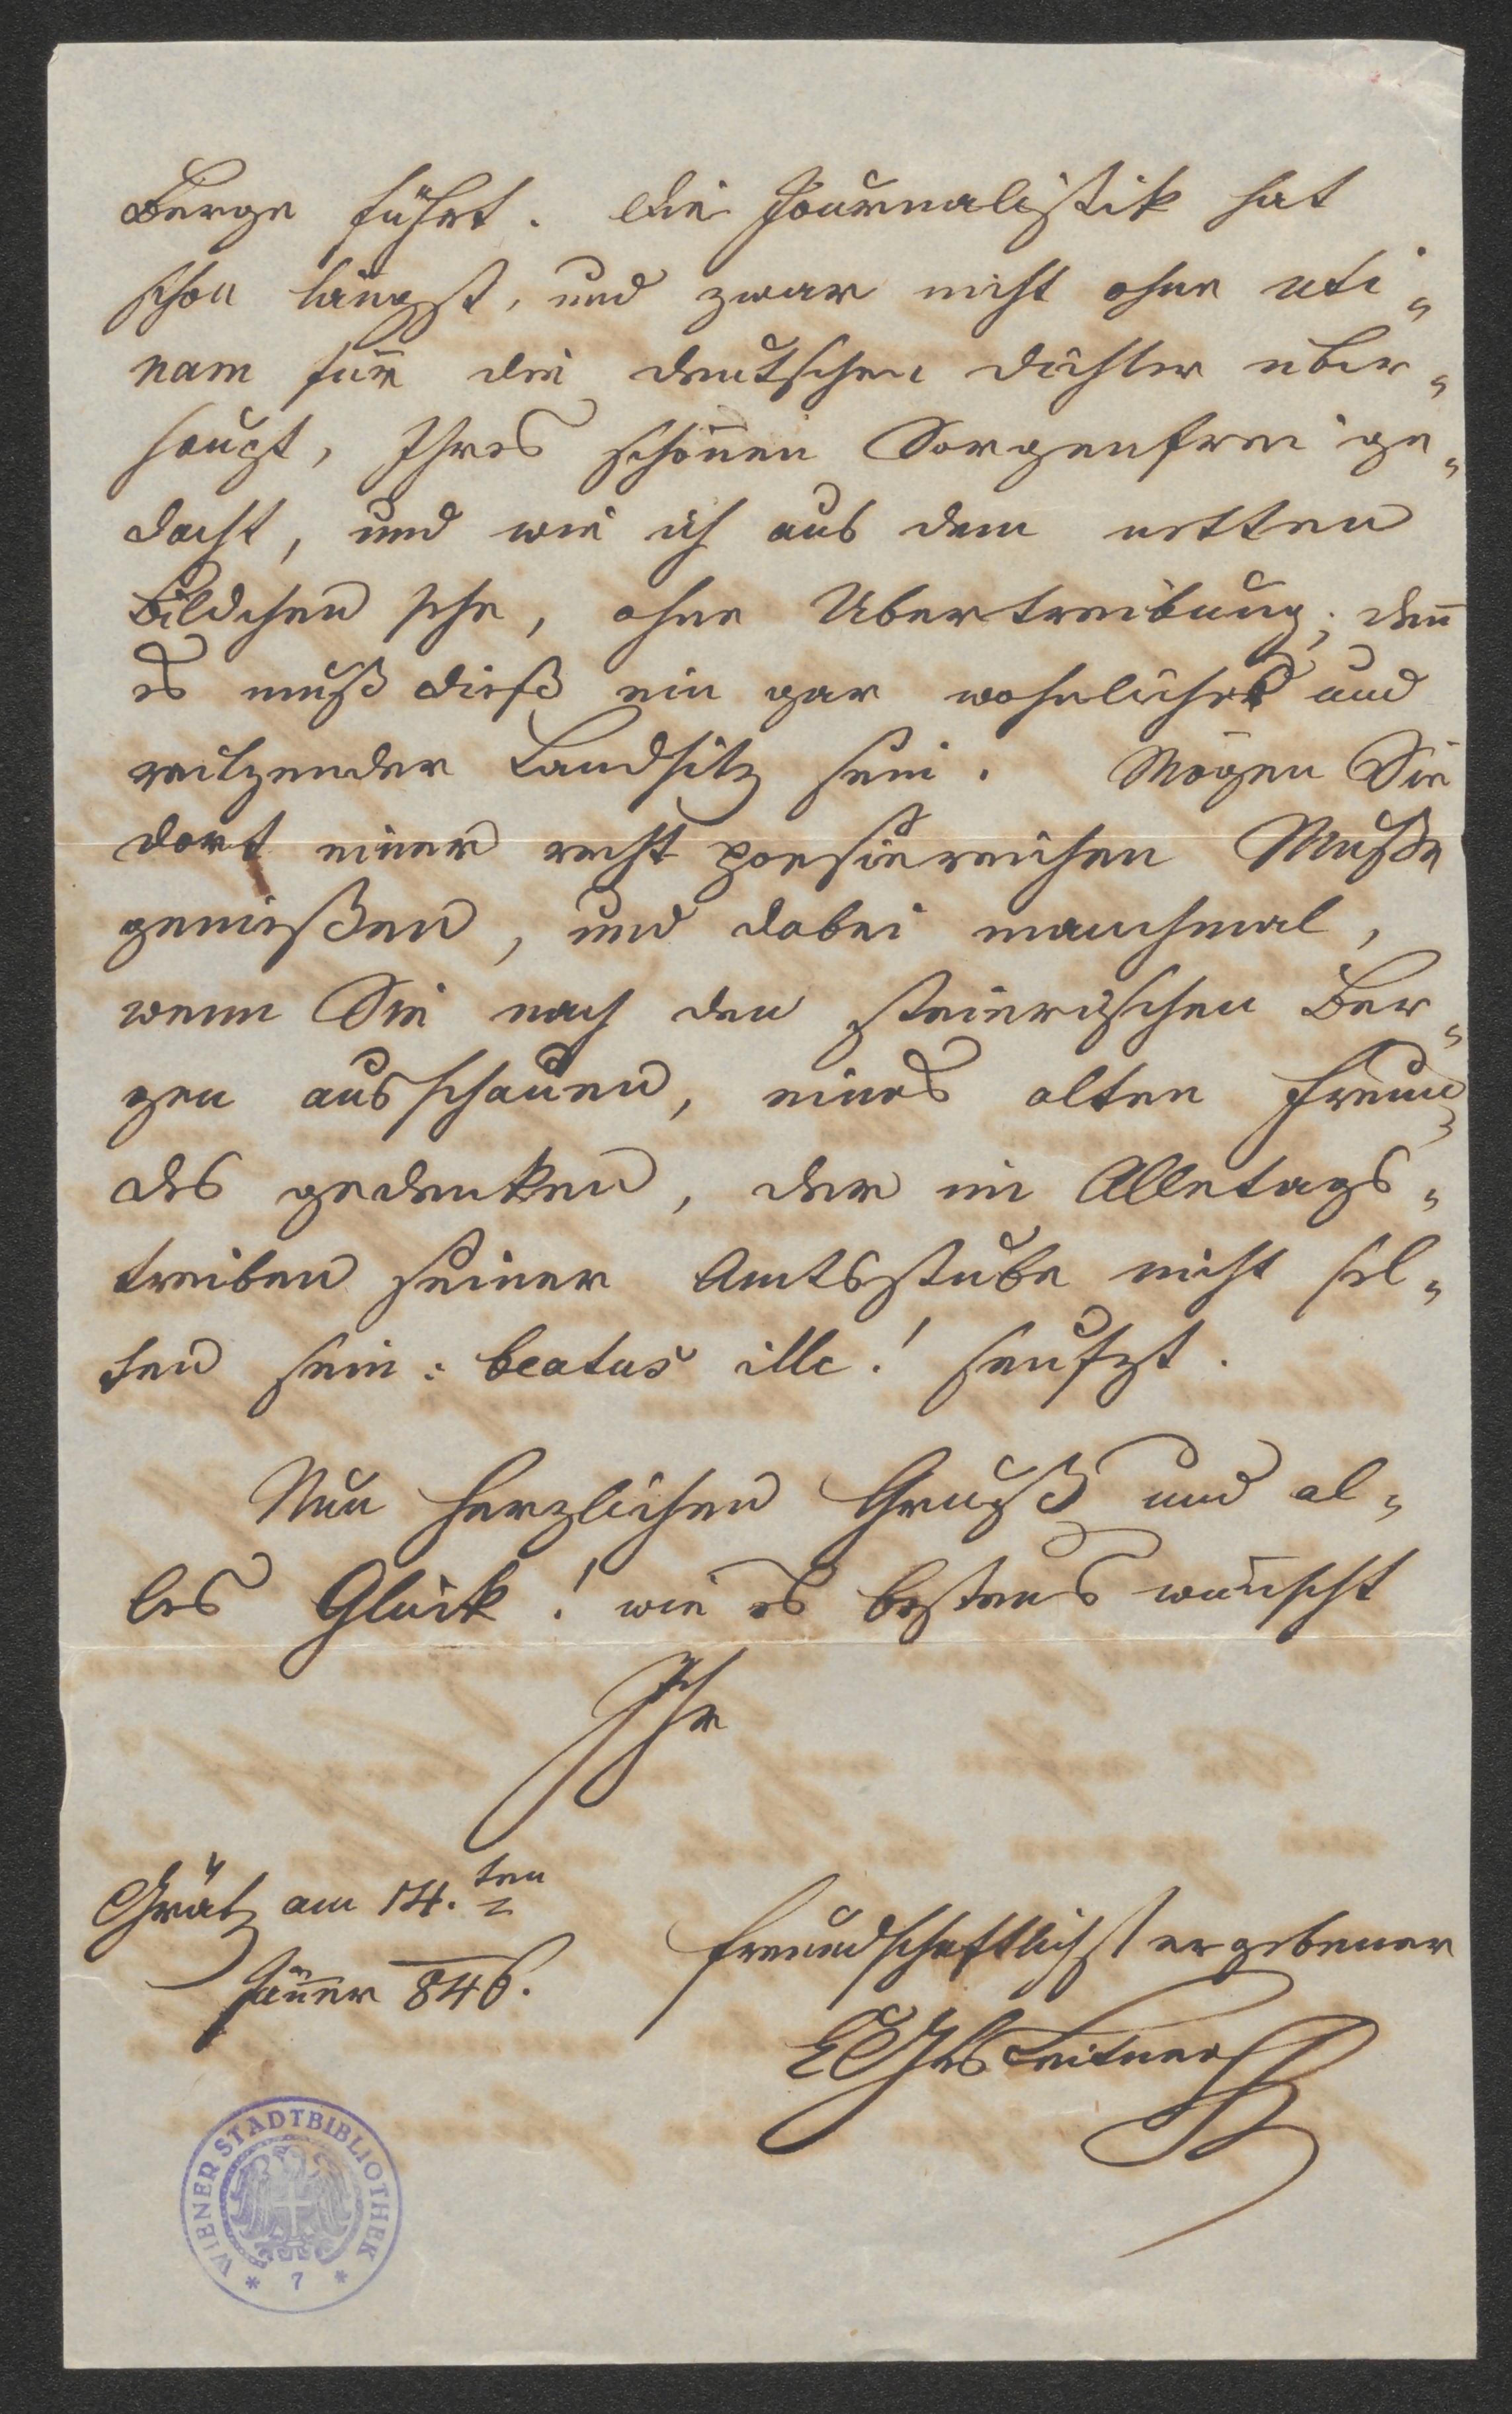 Berge führt. Die Journalistik hat
schon längst, und zwar nicht ohne uti„
nam für die deutschen Dichter über„
haupt, Ihres schönen Sorgenfrei ge„
dacht, und wie ich aus dem netten
Bildchen sehe, ohne Übertreibung; den̄
es muß dieß ein gar wohnlicher und
reitzender Landsitz sein. Mögen Sie
dort einer recht poesiereichen Muße
genießen, und dabei manchmal,
wenn Sie nach den steierischen Ber„
gen ausschauen, eines alten Freun„
des gedenken, der im Alletags„
treiben seiner Amtsstube nicht sel„
ten sein: beatus ille! seufzt.
Nun herzlichen Gruß und al„
les Glück! wie es bestens wünscht
Ihr
Grätz am 14.ten
Jänner 846.
freundschaftlichst ergebener
Leitner
WIENER STADTBIBLIOTHEK
* 7 *